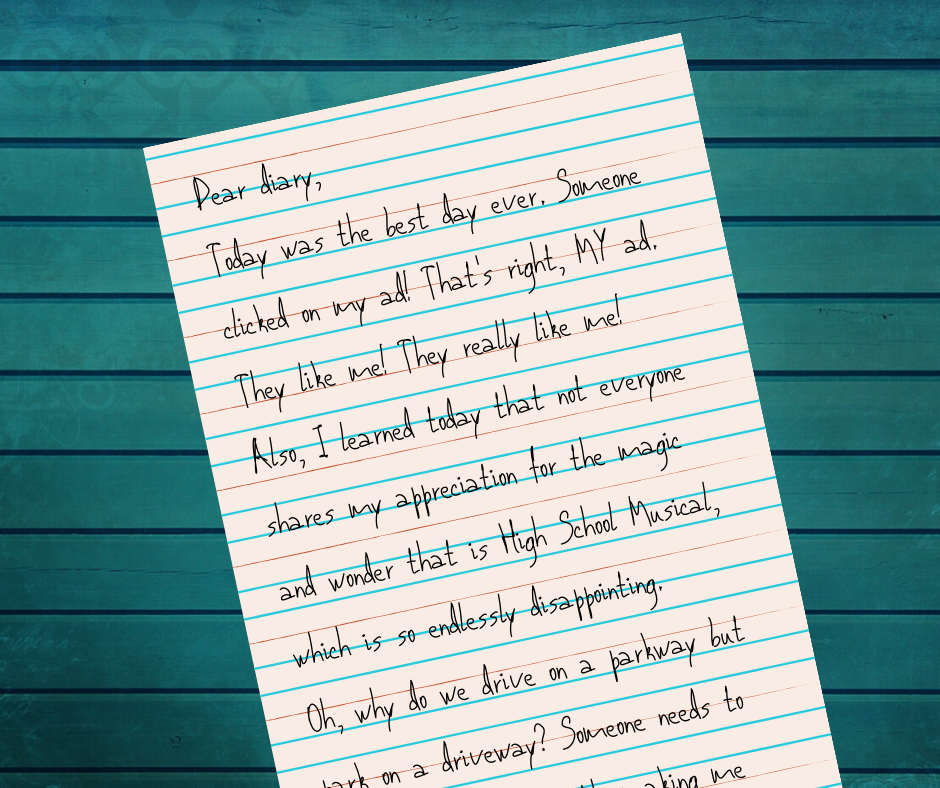 Dear diary,
Today was the best day ever. Someone
clicked on my ad! That's right, MY ad.
They like me! They really like me!
Also, I learned today that not everyone
shares my appreciation for the magic
and wonder that is High School Musical,
which is so endlessly disappointing.
Oh, why do we drive on a parkway but
park on a driveway? Someone needs to
making me